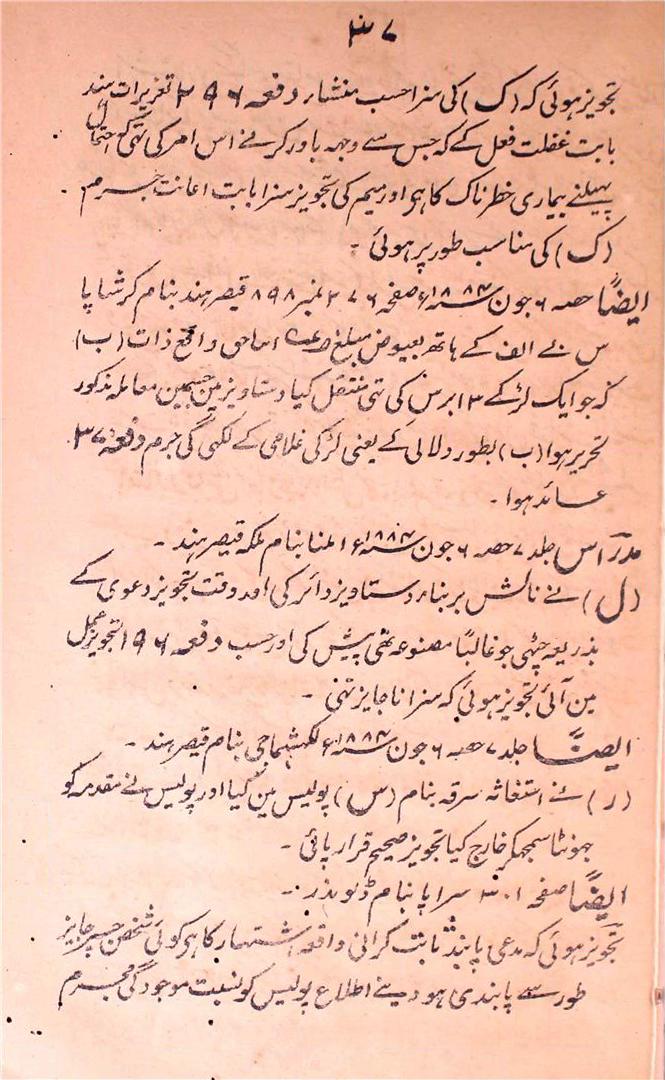 ۳۷
تجویز ہوئی کہ (ک) کی سزا حسب منشار دفعہ ۳۹۶ تعزیرات ہند
بابت غفلت فعل کے کہ جس سے وجہہ باور کرنے اس امر کی تہی کہ احتمال
پہیلنے بیماری خطرناک کا ہو اور میم کی تجویز سزا بابت اعانت جرم
(ک) کی مناسب طور پر ہوئی ۔
ایضاً حصہ ۶ جون سنہ ۱۸۸۴ء صفحہ ۲۷۶ نمبر ۸۹۸ قیصر ہند بنام کرشاپا
س نے الف کے ہاتھ بعیوض مبلغ اساحی واقع ذات (ب)
کہ جو ایک لڑکے ۱۳ برس کی تہی منتقل کیا دستاویز مین جسمین معاملہ مذکور
تحریر ہوا (ب) بطور دلالی کے یعنی لڑکی غلامی کے لکہی گی جرم دفعہ ۳۷۰
عائد ہوا ۔
مدراس جلد ۷ حصہ ۶ جون سنہ ۱۸۸۴ء المنا بنام ملکہ قیصر ہند ۔
(ل) نے نالش بر بناء دستاویز دائر کی اور وقت تجویز دعوی کے
بذریعہ چٹہی جو غالباً مصنوعہ تھی پیش کی اور حسب دفعہ ۱۹۶ تجویز عمل
مین آئی تجویز ہوئی کہ سزا ناجایز تہی ۔
ایضاً جلد ۷ حصہ ۶ جون سنہ ۱۸۸۴ء لکہشماجی بنام قیصر ہند ۔
(ر) نے استغاثہ سرقہ بنام (س) پولیس مین کیا اور پولیس نے مقدمہ کو
جہوٹا سمجہکر خارج کیا تجویز صحیح قرار پائی ۔
ایضاً صفحہ ۳۰۱ سراپا بنام ڈیو بذر ۔
تجویز ہوئی کہ مدعی پابند ثابت کرانی واقعہ اشتہار کا ہو کوئی شخص جسپر جایز
طور سے پابندی ہو دینے اطلاع پولیس کو نسبت موجودگی مجرم